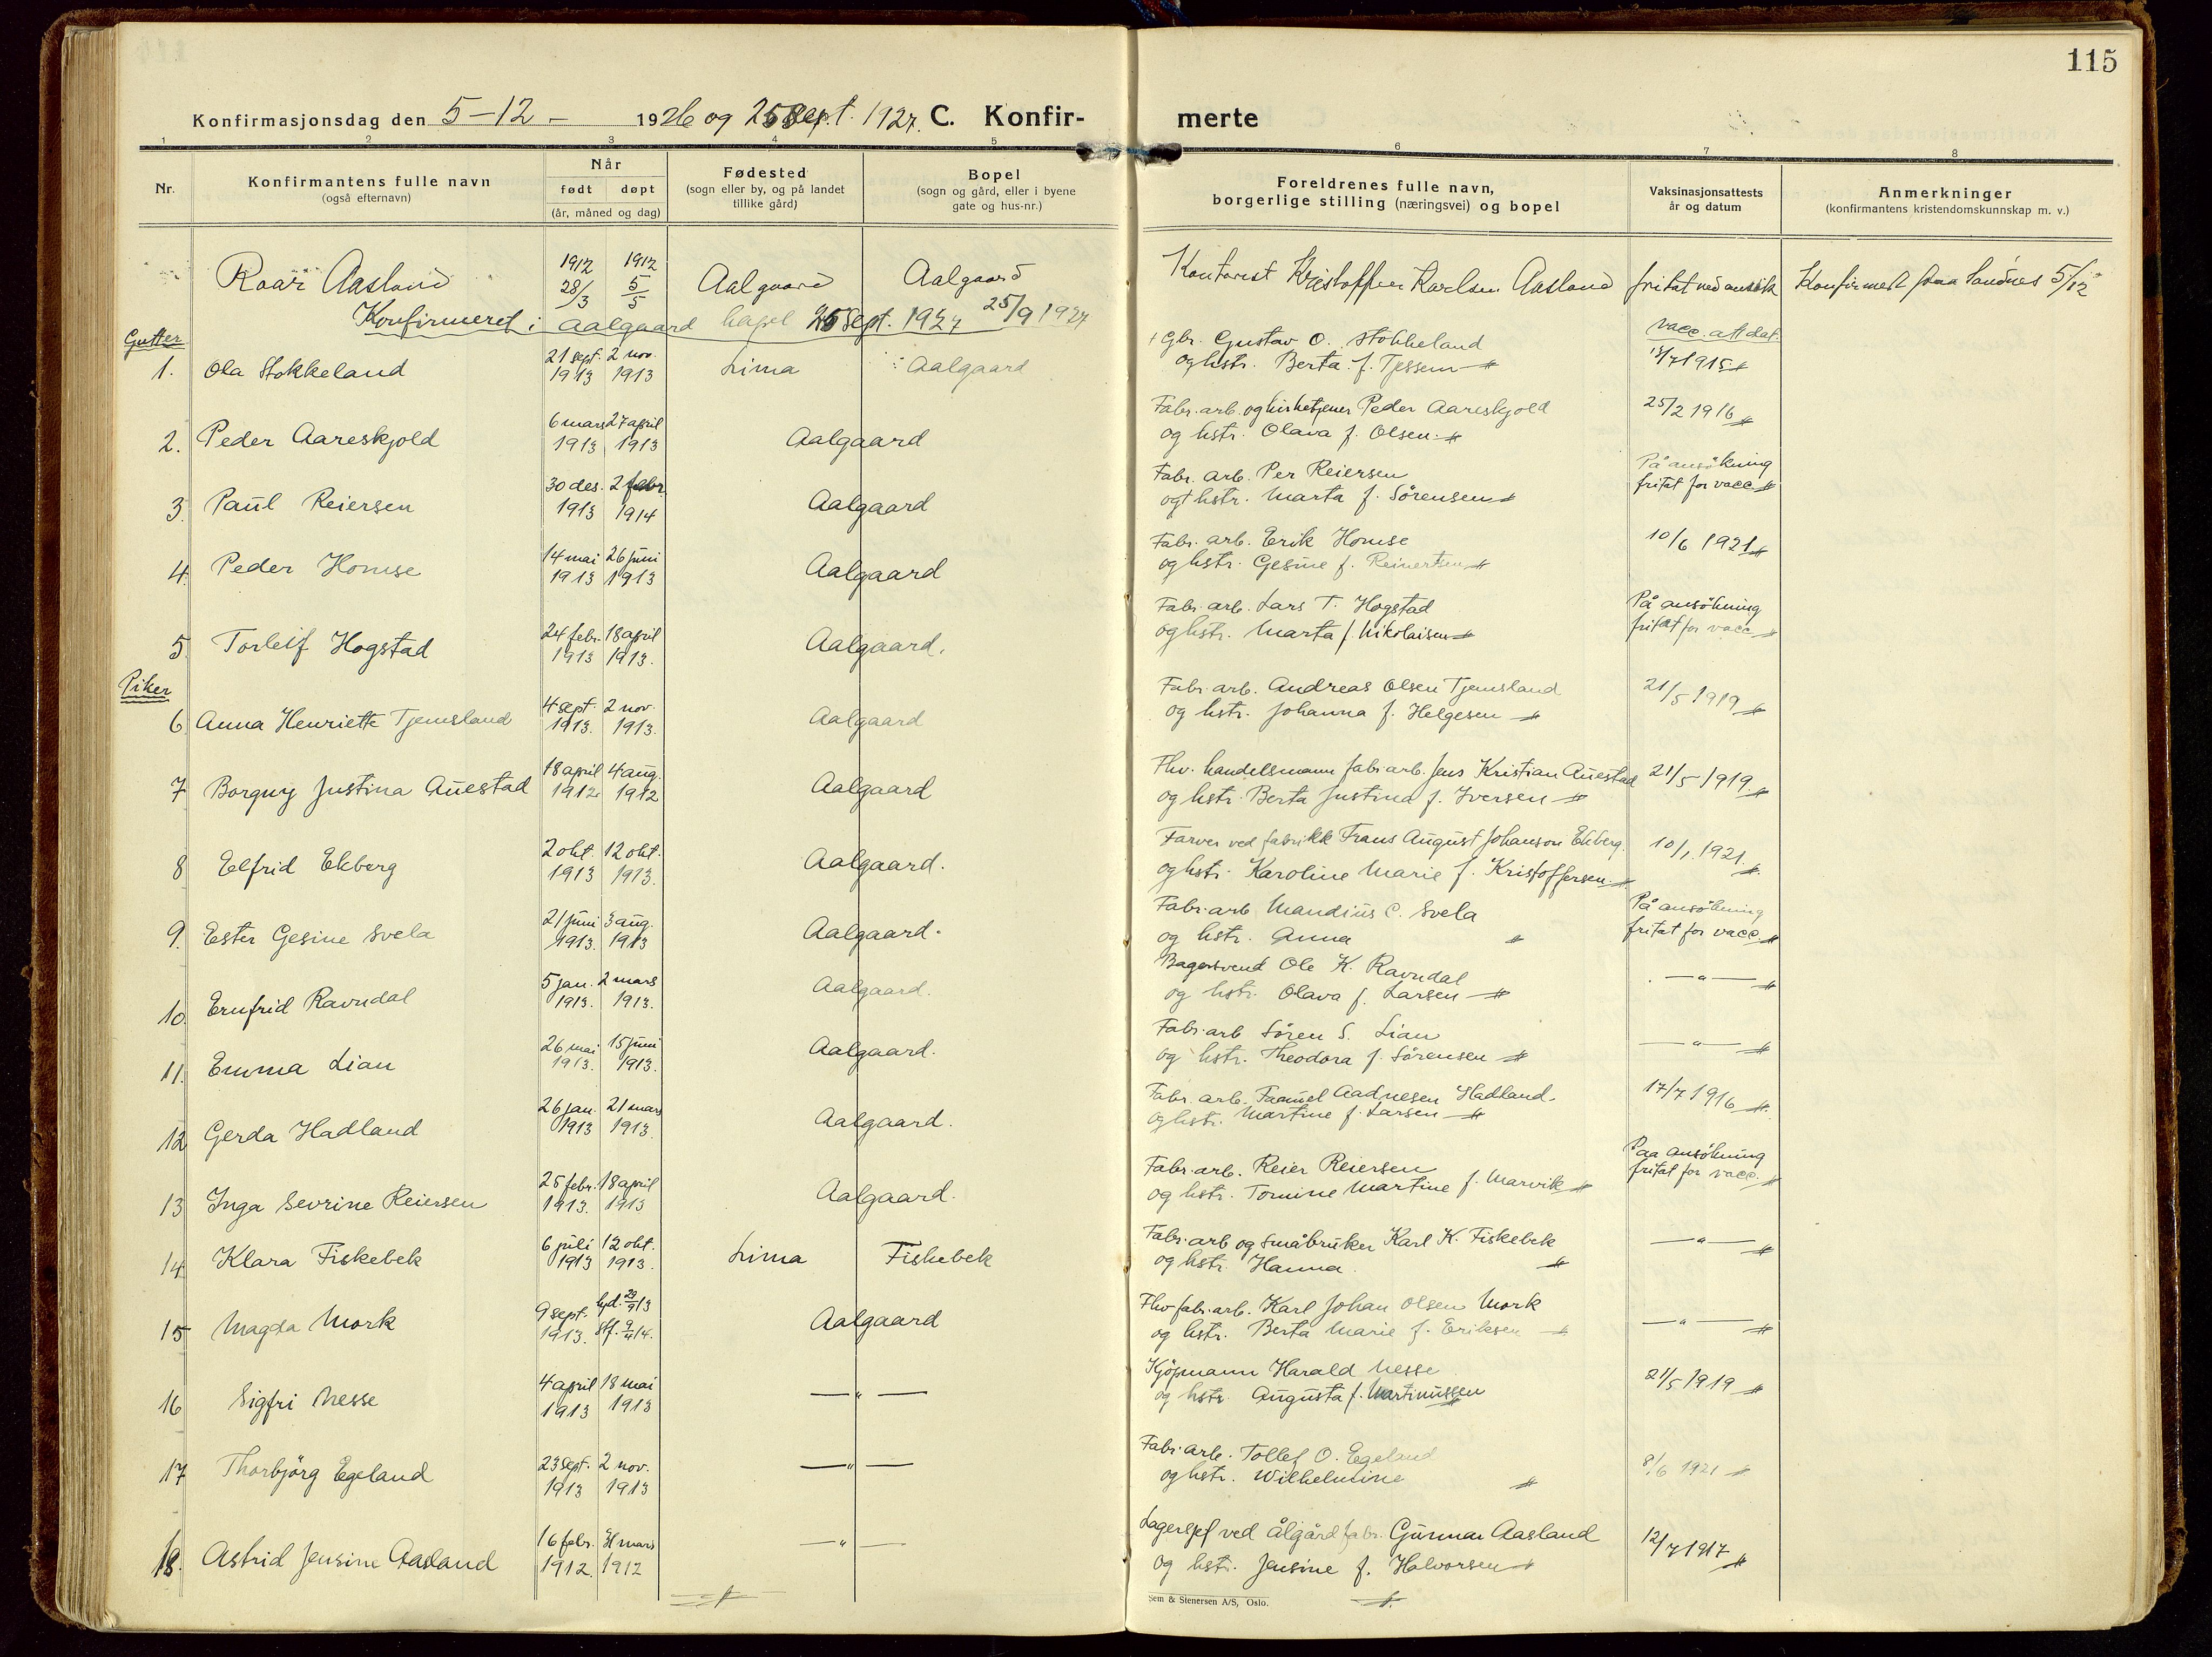 115
Konfirmasjonsdag den 5-12- 1926 og 25 Sept. 1927. C. Konfir-
merte
1 2 3 4 5 6 7 8
Nr.
Konfirmantens fulle navn
(også efternavn)
Når
født døpt
(år, måned og dag)
Fødested
(sogn eller by, og på landet
tillike gård)
Bopel
(sogn og gård, eller i byene
gate og hus-nr.)
Foreldrenes fulle navn,
borgerlige stilling (næringsvei) og bopel
Vaksinasjonsattests
år og datum
Anmerkninger
(konfirmantens kristendomskunnskap m. v.)
Roar Aasland 1912 28/3 1912 5/5 Aalgaard Aalgaard Kontorist Kristoffer Karlsen Aasland fritat ved ansøk Konfirmert fraa Sandnes 5/12
Konfirmeret i Aalgaard kapel 25 Sept. 1927 25/9 1927
Gutter
vacc. att dat.
1. Ola Stokkeland 21 sept. 1913 2 nov. 1913 Lima Aalgaard Gbr. Gustav O. Stokkeland
og hstr. Berta f. Tjessem 1915
2. Peder Aareskjold 6 mars 1913 27 april 1913 Aalgaard Fabr. arb. og kirketjener Peder Aareskjold
og hstr. Olava f. Olsen. 25/2 1916
3. Paul Reiersen 30 des. 1913 2 febr 1914 Aalgaard Fabr. arb. Per Reiersen
og hstr. Marta f. Sörensen På ansökning
fritat for vacc.
4. Peder Homse 14 mai 1913 26 juni 1913 Aalgaard Fabr. arb. Erik Homse
og hstr. Gesine f. Reinertsen 10/6 1921
5. Torleif Hogstad 24 febr. 1913 18 april 1913. Aalgaard. Fabr. arb. Lars T. Hogstad
og hstr. Marta f. Nikolaisen På ansökning
fritat for vacc
Piker
6 Anna Henriette Tjemsland 4 sept. 1913. 2 nov. 1913. Aalgaard Fabr. arb. Andreas Olsen Tjemsland
og hstr. Johanna f. Helgesen 21/5 1919
7 Borguy Justina Auestad 18 april 1912 4 aug. 1912 Aalgaard Fhv. handelsmann fabr. arb. Jens Kristian Auestad
og hstr. Berta Justina f. Iversen 21/5 1919
8 Elfrid Ekberg 2 okt. 1913 12 okt. 1913. Aalgaard. Farver ved fabrikk Frans August Johanson Ekberg.
og hstr. Karoline Marie f. Kristoffersen. 10/1 1921
9. Ester Gesine Svela 21 juni 1913. 3 aug. 1913 Aalgaard. Fabr. arb Mandius C. Svela
og hstr. Anna På ansökning
fritat for vacc.
10. Ernfrid Ravndal 5 jan. 1913. 2 mars 1913. Aalgaard. Bagersvend Ole K. Ravndal
og hstr. Olava f. Larsen —"—
11. Emma Lian 26 mai 1913. 15 juni 1913. Aalgaard. Fabr. arb Sören S. Lian
og hstr. Theodora f. Sörensen —"—
12 Gerda Hadland 26 jan. 1913 21 mars 1913. Aalgaard. Fabr. arb. Aadnesen Hadland.
og hstr. Martine f. Larsen 17/7 1916
13 Inga Sevrine Reiersen 25 febr. 1913. 18 april 1913 Aalgaard. Fabr. arb. Reier Reiersen
og hstr. Tomine Martine f. Marvik Paa ansökning
fritat for vacc.
14 Klara Fiskebek 6 juli 1913 12 okt. 1913. Lima Fiskebek Fabr. arb og småbruker Karl K. Fiskebek
og hstr. Hanna —"—
15 Magda Mork 9 sept. 1913. hjd. 29/9 13 stf. 9/4 14. Aalgaard Fhv fabr. arb. Karl Johan Olsen Mork
og hstr. Berta Marie f. Eriksen —"—
16 Sigfri Nesse 4 april 1913 18 mai 1913 —"— Kjöpmann Harald Nesse
og hstr. Augusta f. Martinussen 21/5 1919
17 Thorbjörg Egeland 23 sept. 1913 2 nov. 1913 —"— Fabr. arb. Tollef O. Egeland
og hstr. Wilhelmine 8/6 1921
18. Astrid Jensine Aasland 16 febr. 1912. 31 mars 1912 —"— Lagersjef ved Ålgård fabr. Gunnar Aasland
og hstr. Jensine f. Halvorsen 12/7 1917
Sem & Stenersen A/S, Oslo.